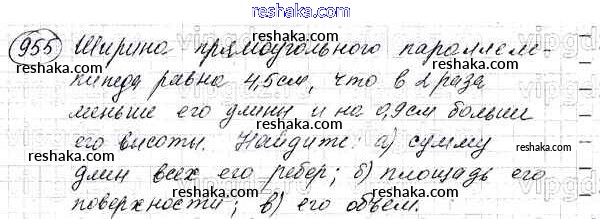 reshaka.com
955 Ширина прямоугольного параллеле-
reshaka.com reshaka.com
пипеда равна 4,5см, что в 2 раза
меньше его длины и на 0,9см больше
его высоты. Найдите: а) сумму
reshaka.com reshaka.com
длин всех его ребер; б) площадь его
поверхности; в) его объем.
reshaka.com